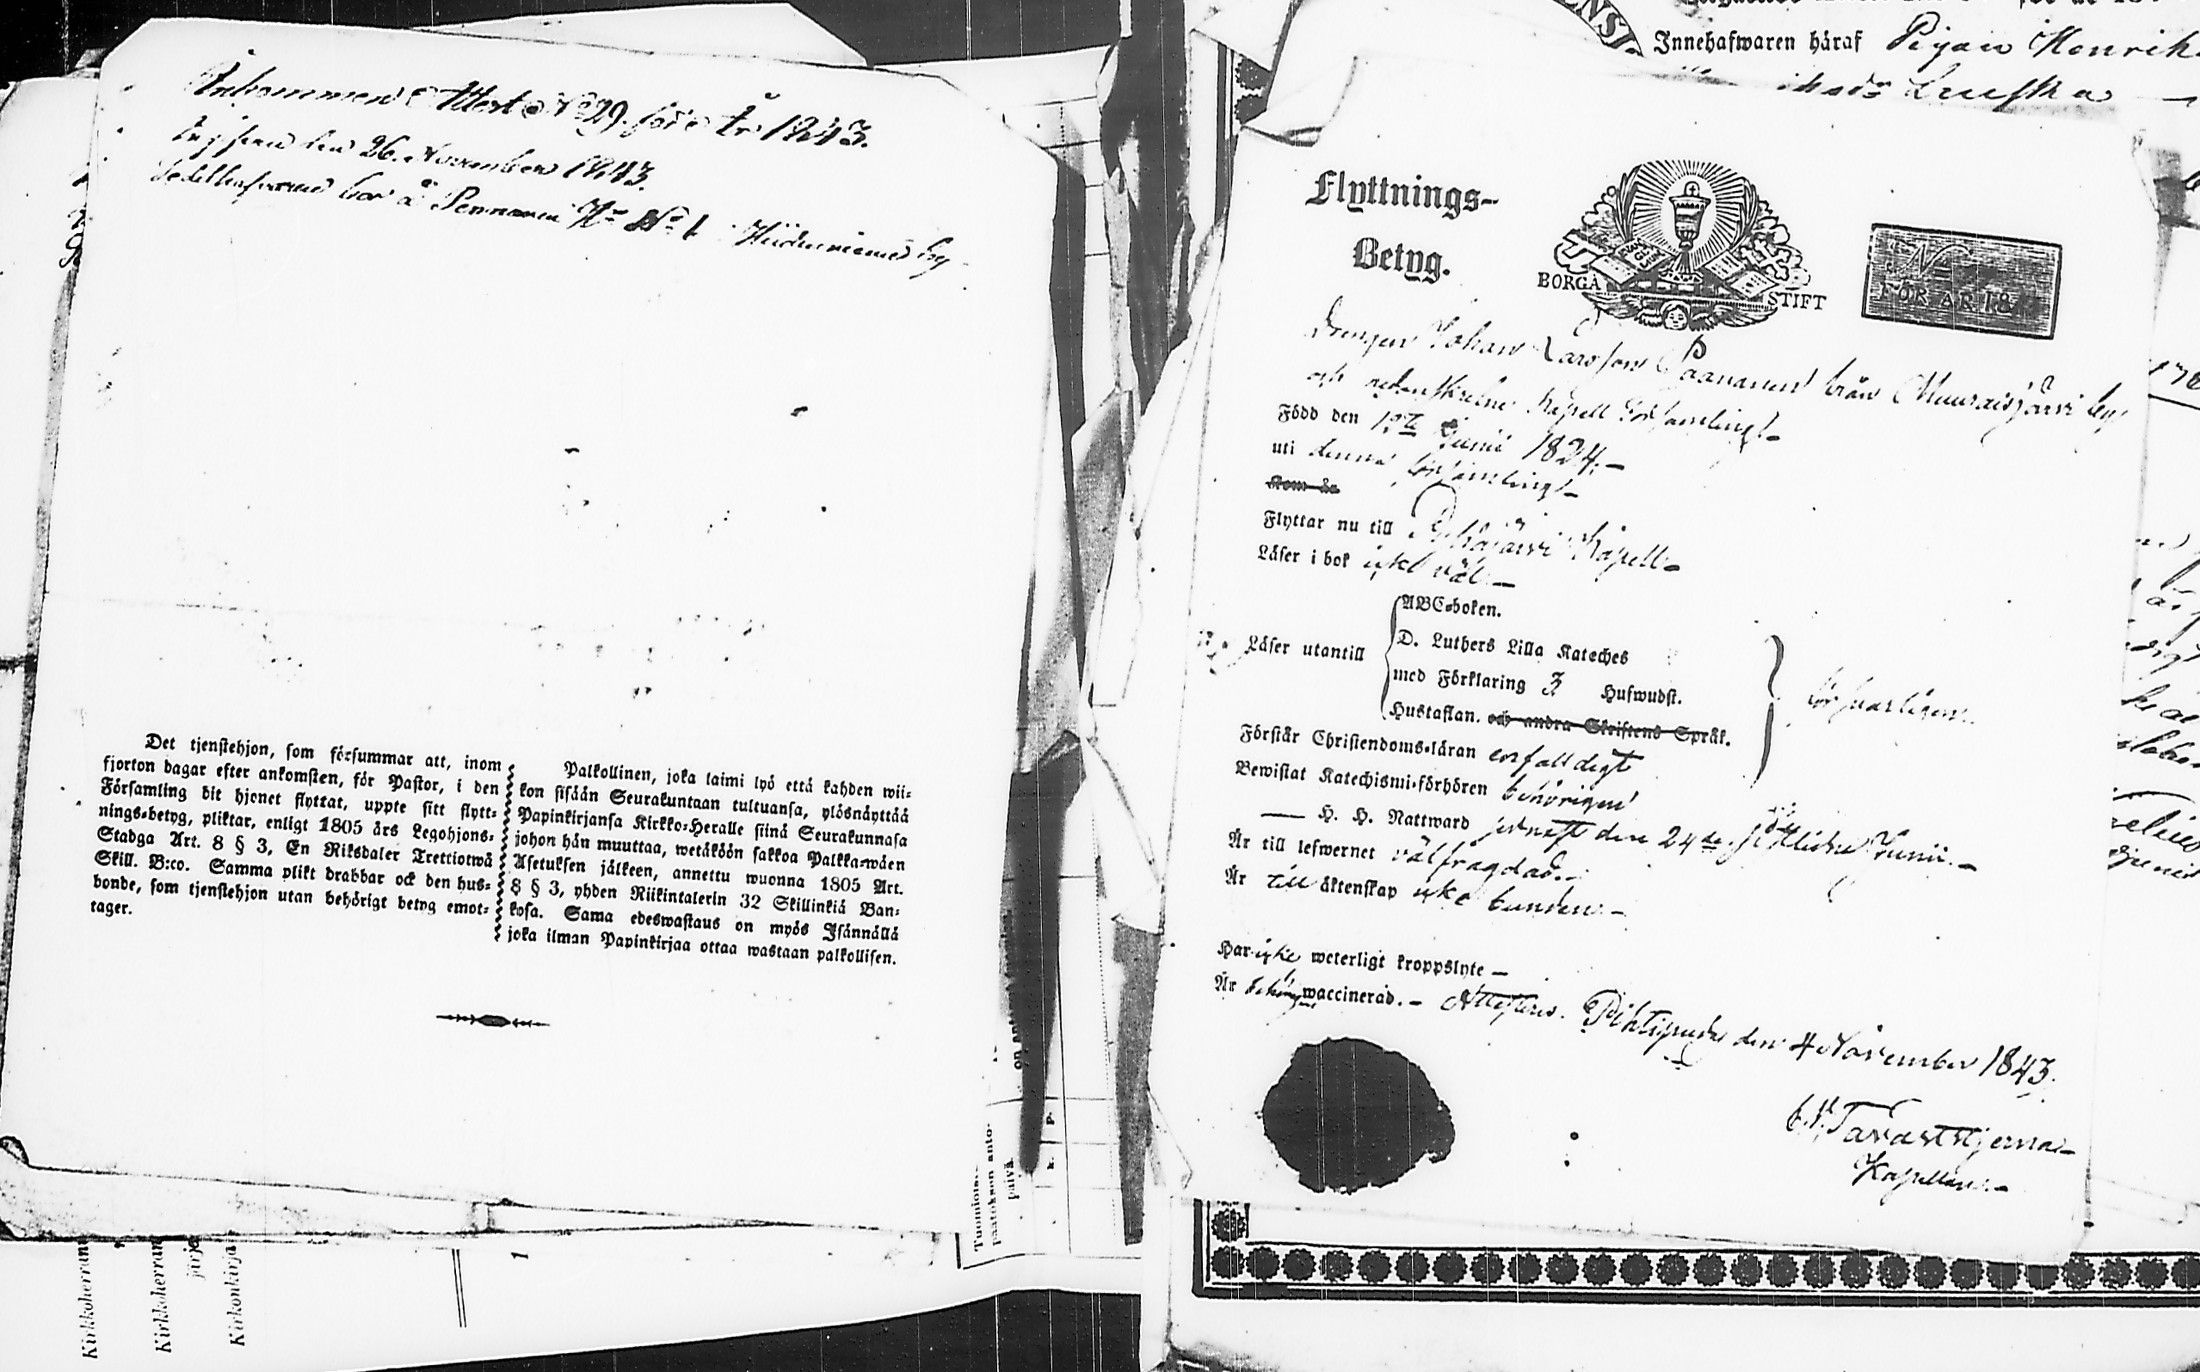 Inkommen Attest No 29. för År 1843.
den 26. November 1843.
bor å Pennanen Hn No 1 Hiidenniemi by
Det tjenstehjon, som försummar att, inom
fjorton dagar efter ankomsten, för Pastor, i den
Församling dit hjonet flyttat, uppte sitt flytt-
nings-betyg, pliktar, enligt 1805 års Legohjons-
Stadga Art. 8 § 3, En Riksdaler Trettiotwå
Skill. B:co. Samma plikt drabbar ock den hus-
bonde, som tjenstehjon utan behörigt betyg emot-
tager.
Palkollinen, joka laimi lyö että kahden wii-
kon sisään Seurakuntaan tultuansa, ylösnäyttää
Papinkirjansa Kirkko-Heralle siinä Seurakunnasa
johon hän muuttaa, wetäköön sakkoa Palkka-wäen
Asetuksen jälkeen, annettu wuonna 1805 Art.
8 § 3, yhden Riikintalerin 32 Skillinkiä Ban-
kosa. Sama edeswastaus on myös Isännällä
joka ilman Papinkirjaa ottaa wastaan palkollisen.
Kirkkoherran
Kirkkoherran
järje
Kirkonkirja
1
Tuomioistu-
päätöksen anto-
päivä.
Innehafwaren häraf Pigan Henrik
Flyttnings-
Betyg.
BORGÅ STIFT
N
FÖR ÅR 184
Drengen Johan Larsson Paananen från Muuraisjärvi by
och nedanskrefne Kapell Församling
Född den 13de Junii 1824.
uti denna församling
Kom år
Flyttar nu till Pyhäjärvi Kapell
Läser i bok icke väl
Läser utantill
ABC-boken.
D. Luthers Lilla Kateches
med Förklaring 3 Hufwudst.
Hustaflan. och andra Skriftens Språk.
försvarligen
Förstår Christendoms-läran enfaldigt
Bewistat Katechismi-förhören behörigen
— H. H. Nattward senast den 24de sistlidne Junii
Är till lefwernet välfrägdad
Är till äktenskap icke bunden
Har icke weterligt kroppslyte
Är behörigen waccinerad. Attesteras. Pihtipudas den 4 November 1843.
Tavaststjerna
Kapellan